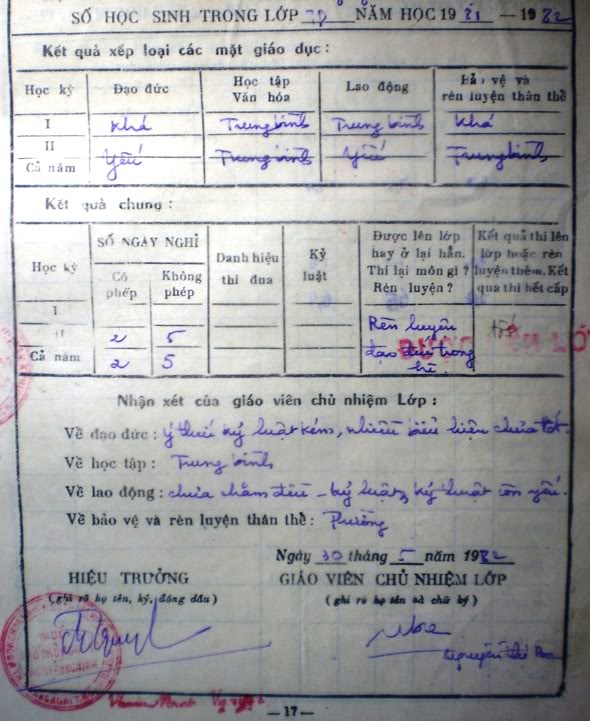 SỐ HỌC SINH TRONG LỚP NĂM HỌC 19 81 — 1982
Kết quả xếp loại các mặt giáo dục :
Học kỳ Đạo đức Học tập Văn hóa Lao động Bảo vệ và rèn luyện thân thể
I Khá Trung bình Trung bình Khá
II
Cả năm Yếu Trung bình Yếu Trung bình
Kết quả chung :
Học kỳ SỐ NGÀY NGHỈ Danh hiệu thi đua Kỷ luật Được lên lớp hay ở lại hẳn. Thi lại môn gì ? Rèn luyện ? Kết quả thi lên lớp hoặc rèn luyện thêm. Kết quả thi hết cấp
Có phép Không phép
I
II 2 5 Rèn luyện tốt
Cả năm 2 5 đạo đức trong hè.
ĐƯỢC LÊN LỚP
Nhận xét của giáo viên chủ nhiệm Lớp :
Về đạo đức : ý thức kỷ luật kém, nhiều biểu hiện chưa tốt.
Về học tập : Trung bình
Về lao động : chưa chăm đều – kỷ luật, kỹ thuật còn yếu.
Về bảo vệ và rèn luyện thân thể : Thường
Ngày 30 tháng 5 năm 1982
HIỆU TRƯỞNG GIÁO VIÊN CHỦ NHIỆM LỚP
(ghi rõ họ tên, ký, đóng dấu) (ghi rõ họ tên và chữ ký)
Nguyễn Thị
— 17 —